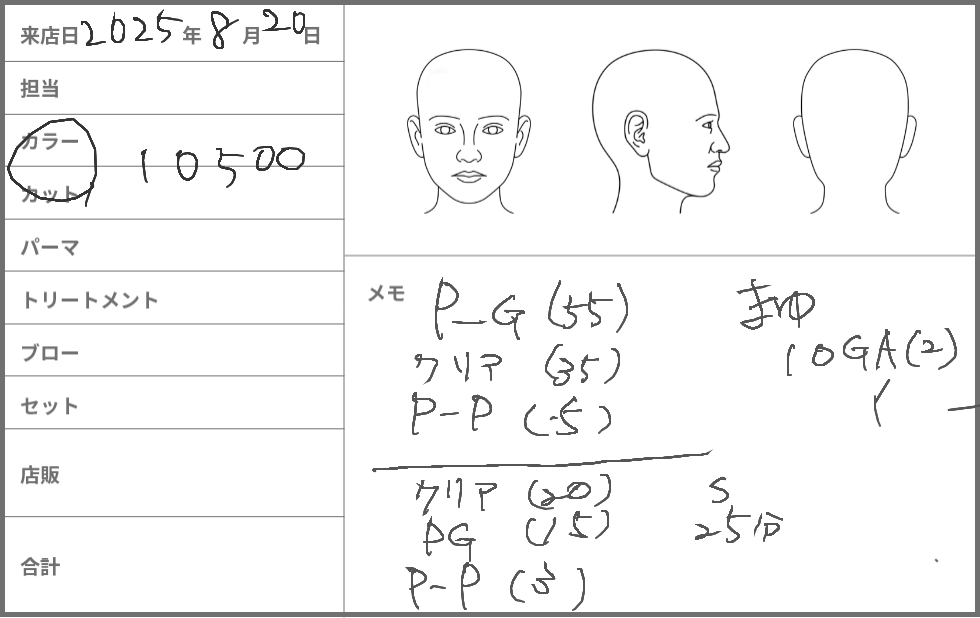 来店日 2025 年 8 月 20 日
担当
カラー
カット
10500
パーマ
トリートメント
ブロー
セット
店販
合計
メモ
P_G (55)
クリア (35)
P-P (5)
クリア (20)
PG (15)
P-P (3)
まゆ
10GA(2)
S
25分